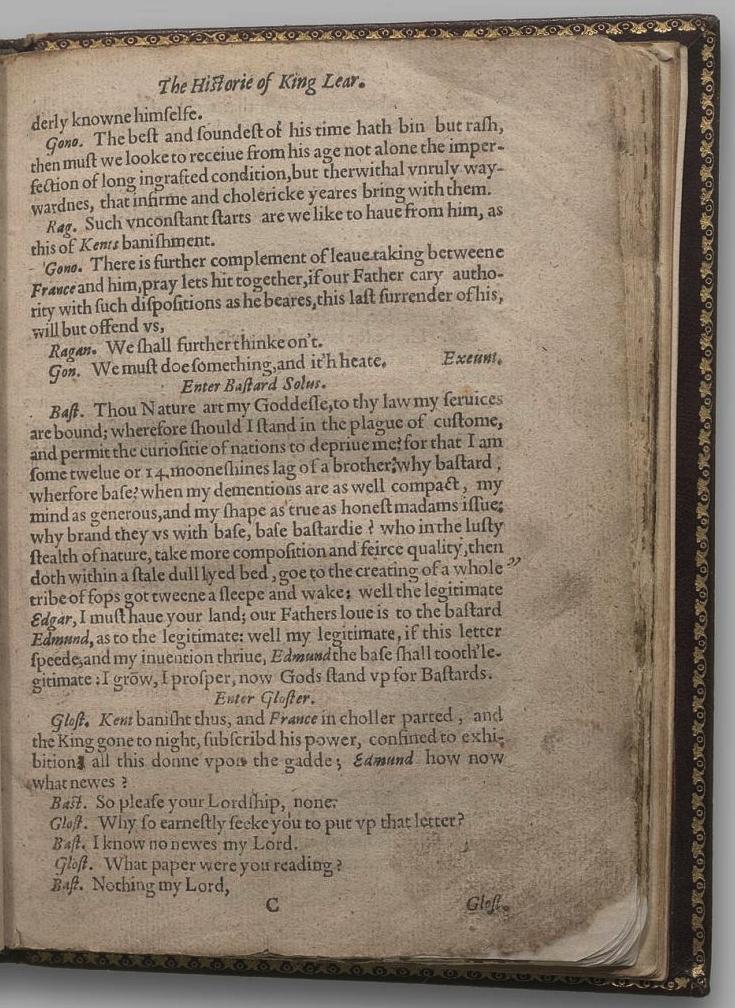 The Hiſtorie of King Lear.
derly knowne himſelfe.
Gono. The beſt and ſoundeſt of his time hath bin but raſh,
then muſt we looke to receiue from his age not alone the imper-
fection of long ingrafted condition,but therwithal vnruly way-
wardnes, that infirme and cholericke yeares bring with them.
Rag. Such vnconſtant ſtarts are we like to haue from him, as
this of Kents baniſhment.
Gono. There is further complement of leaue taking betweene
France and him,pray lets hit together,if our Father cary autho-
rity with ſuch diſpoſitions as he beares,this laſt ſurrender of his,
will but offend vs,
Ragan. We ſhall further thinke on't.
Gon. We muſt doe ſomething,and it'h heate. Exeunt.
Enter Baſtard Solus.
Baſt. Thou Nature art my Goddeſſe,to thy law my ſeruices
are bound; wherefore ſhould I ſtand in the plague of cuſtome,
and permit the curioſitie of nations to depriue me? for that I am
ſome twelue or 14.mooneſhines lag of a brother?why baſtard,
wherfore baſe? when my dementions are as well compact, my
mind as generous,and my ſhape as true as honeſt madams iſſue;
why brand they vs with baſe, baſe baſtardie? who in the luſty
ſtealth of nature, take more compoſition and feirce quality,then
doth within a ſtale dull lyed bed, goe to the creating of a whole
tribe of fops got tweene a ſleepe and wake; well the legitimate
Edgar, I muſt haue your land; our Fathers loue is to the baſtard
Edmund, as to the legitimate: well my legitimate, if this letter
ſpeede,and my inuention thriue, Edmund the baſe ſhall tooth'le-
gitimate: I grow, I proſper, now Gods ſtand vp for Baſtards.
Enter Gloſter.
Gloſt. Kent baniſht thus, and France in choller parted, and
the King gone to night, ſubſcribd his power, confined to exhi-
bition, all this donne vpon the gadde; Edmund how now
what newes?
Baſt. So pleaſe your Lordſhip, none.
Gloſt. Why ſo earneſtly ſeeke you to put vp that letter?
Baſt. I know no newes my Lord.
Gloſt. What paper were you reading?
Baſt. Nothing my Lord,
C Gloſt.